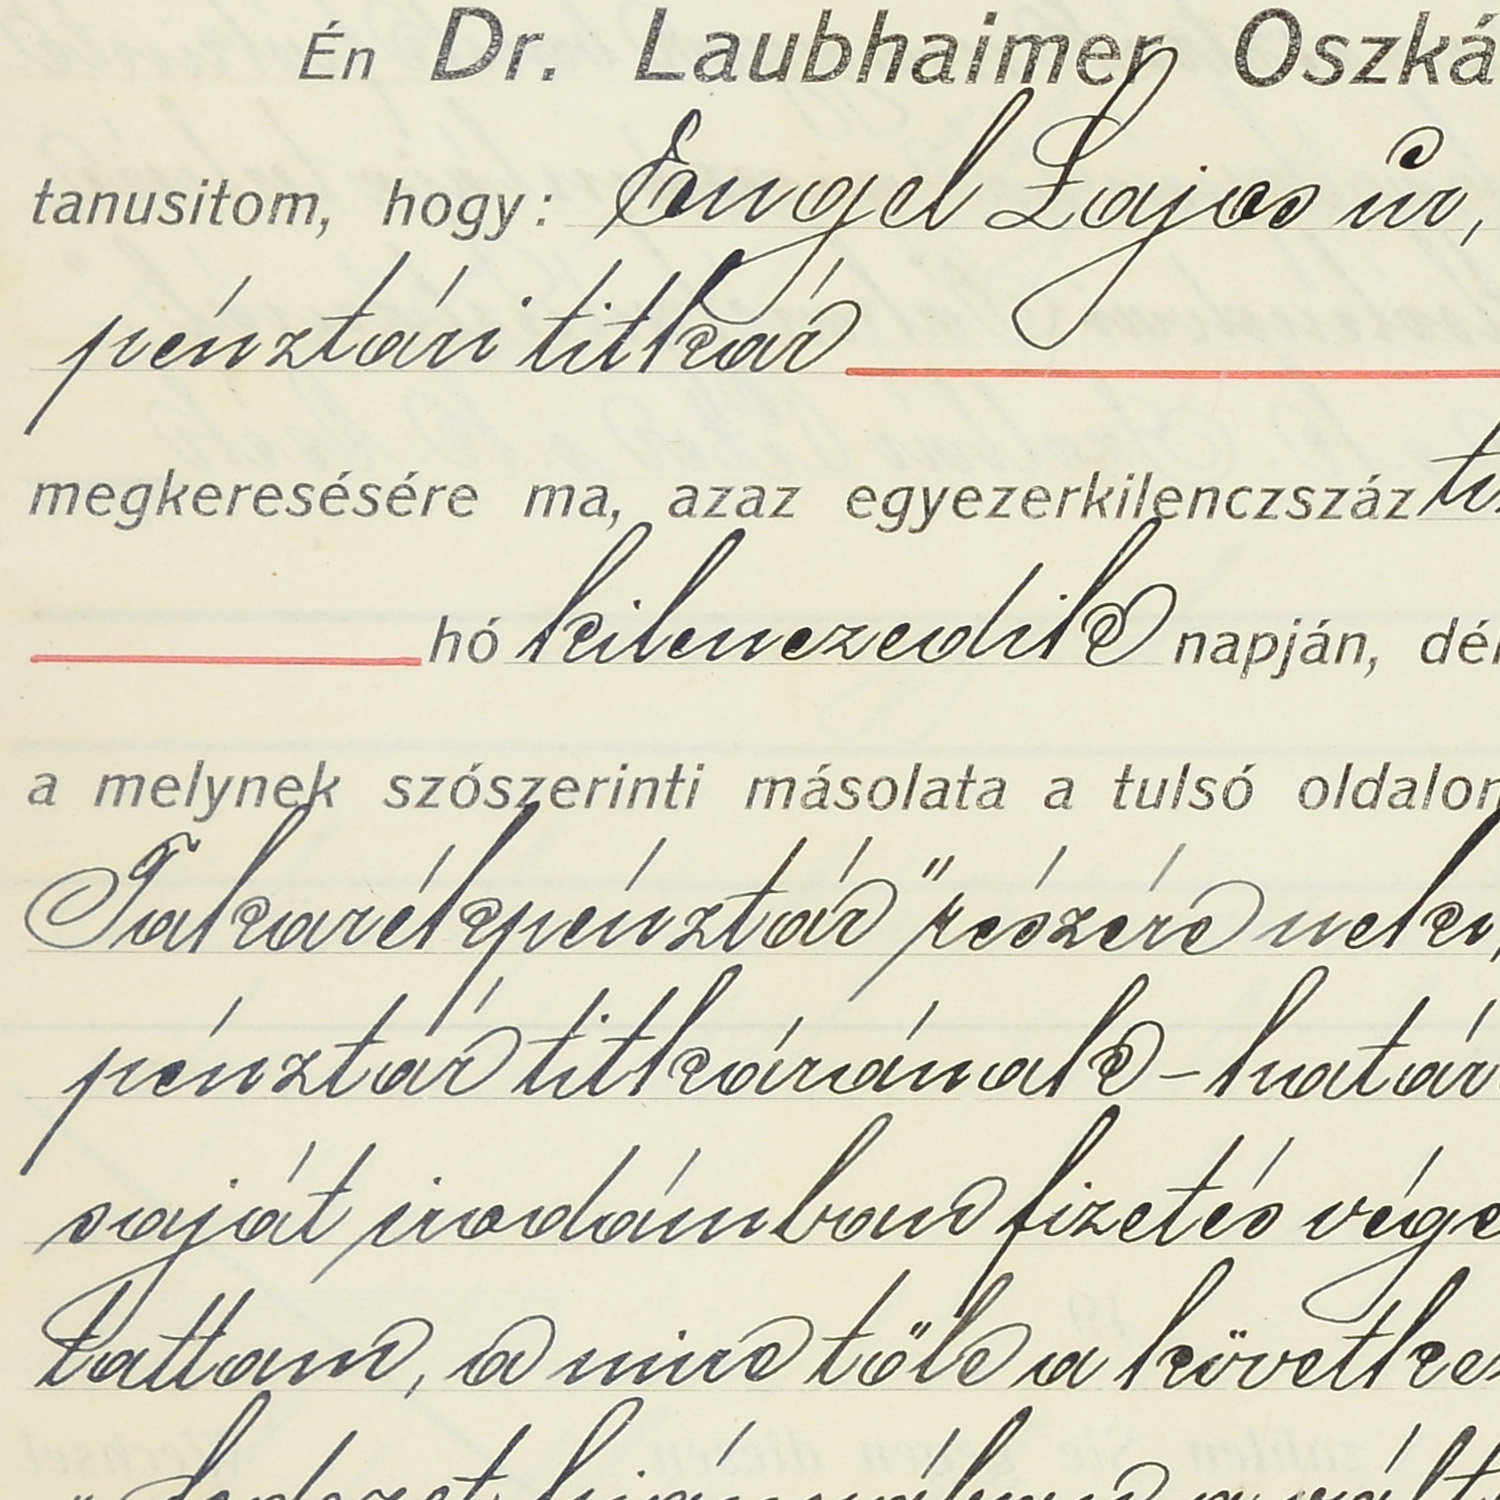 Én Dr. Laubhaimer Oszká
tanusitom, hogy: Engel Lajos úr,
pénztári titkár
megkeresésére ma, azaz egyezerkilenczszáz
hó kilenczedik napján, dél
a melynek szószerinti másolata a tulsó oldalon
Takarékpénztár" részére neki,
pénztár titkárának - határ
saját irodámban fizetés vége
tattam, a mire tőle a követke
"Fedezet hiányában a vált